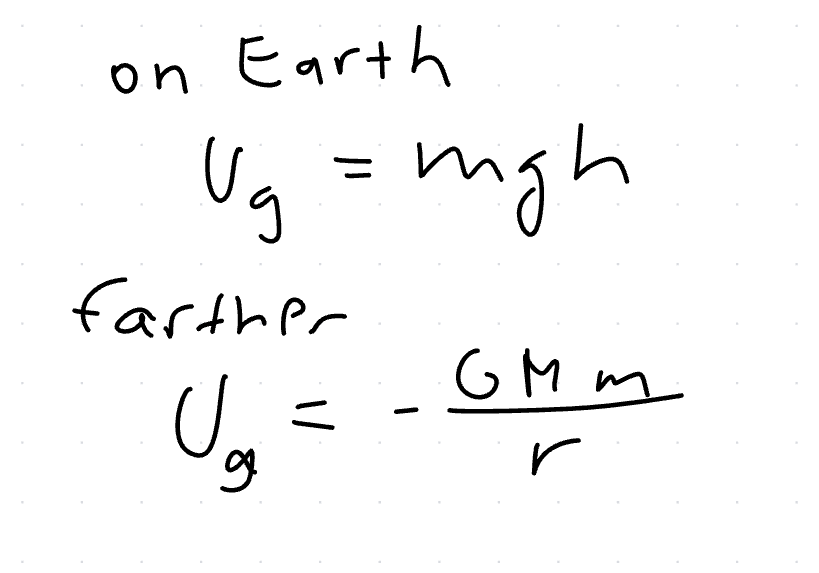 on Earth
U_g = mgh
farther
U_g = - GMm / r